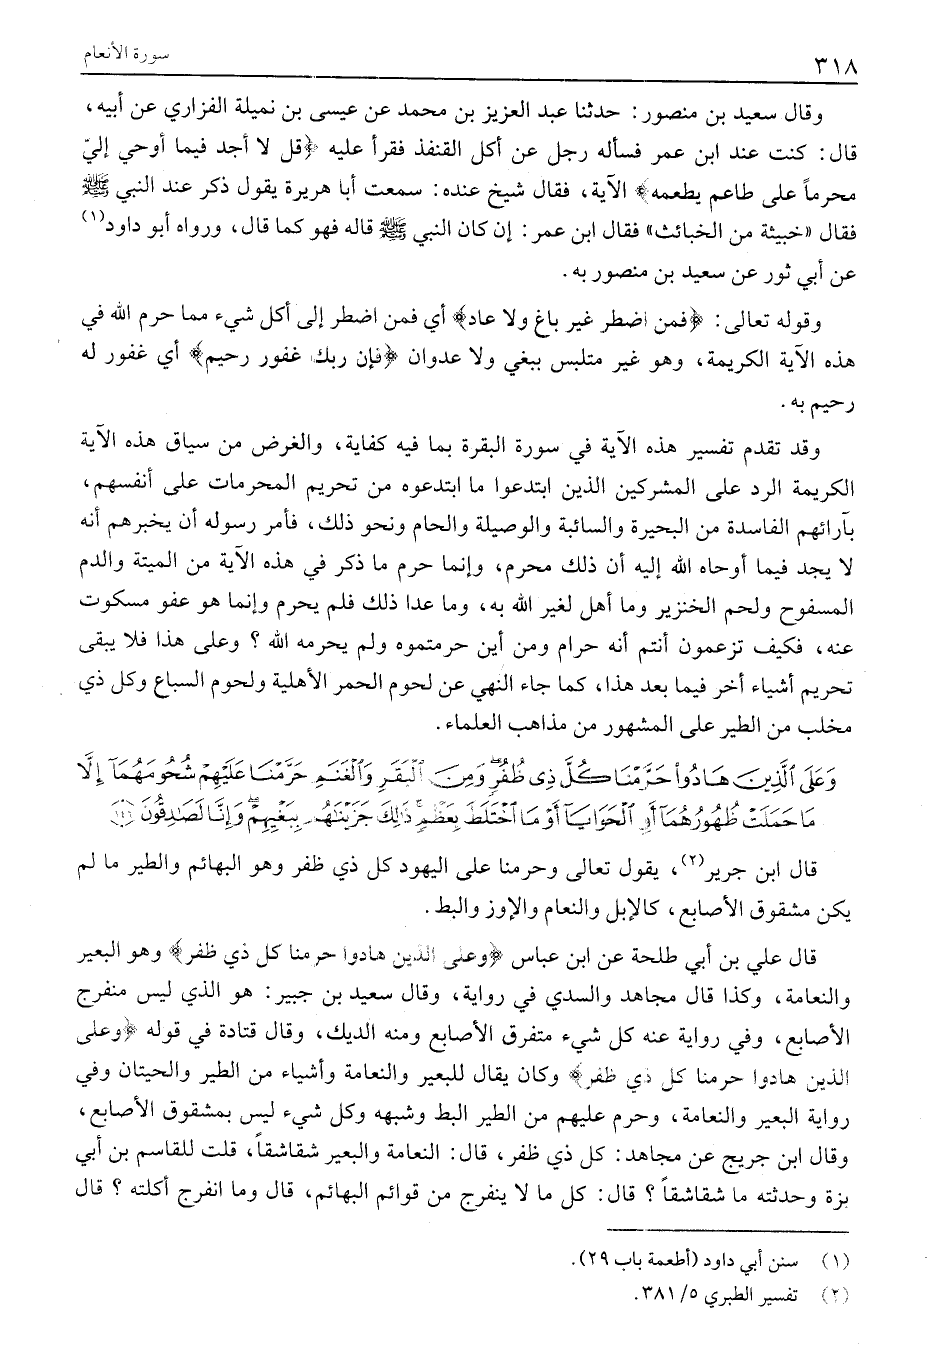 ٣١٨
سورة الأنعام
وقال سعيد بن منصور: حدثنا عبد العزيز بن محمد عن عيسى بن نميلة الفزاري عن أبيه،
قال: كنت عند ابن عمر فسأله رجل عن أكل القنفذ فقرأ عليه ﴿قل لا أجد فيما أوحي إليّ
محرماً على طاعم يطعمه﴾ الآية، فقال شيخ عنده: سمعت أبا هريرة يقول ذكر عند النبي ﷺ
فقال «خبيثة من الخبائث» فقال ابن عمر: إن كان النبي ﷺ قاله فهو كما قال، ورواه أبو داود(١)
عن أبي ثور عن سعيد بن منصور به.
وقوله تعالى: ﴿فمن اضطر غير باغ ولا عاد﴾ أي فمن اضطر إلى أكل شيء مما حرم الله في
هذه الآية الكريمة، وهو غير متلبس ببغي ولا عدوان ﴿فإن ربك غفور رحيم﴾ أي غفور له
رحيم به.
وقد تقدم تفسير هذه الآية في سورة البقرة بما فيه كفاية، والغرض من سياق هذه الآية
الكريمة الرد على المشركين الذين ابتدعوا ما ابتدعوه من تحريم المحرمات على أنفسهم،
بآرائهم الفاسدة من البحيرة والسائبة والوصيلة والحام ونحو ذلك، فأمر رسوله أن يخبرهم أنه
لا يجد فيما أوحاه الله إليه أن ذلك محرم، وإنما حرم ما ذكر في هذه الآية من الميتة والدم
المسفوح ولحم الخنزير وما أهل لغير الله به، وما عدا ذلك فلم يحرم وإنما هو عفو مسكوت
عنه، فكيف تزعمون أنتم أنه حرام ومن أين حرمتموه ولم يحرمه الله ؟ وعلى هذا فلا يبقى
تحريم أشياء أخر فيما بعد هذا، كما جاء النهي عن لحوم الحمر الأهلية ولحوم السباع وكل ذي
مخلب من الطير على المشهور من مذاهب العلماء.
وَعَلَى ٱلَّذِينَ هَادُوا۟ حَرَّمْنَا كُلَّ ذِى ظُفُرٍ ۖ وَمِنَ ٱلْبَقَرِ وَٱلْغَنَمِ حَرَّمْنَا عَلَيْهِمْ شُحُومَهُمَآ إِلَّا
مَا حَمَلَتْ ظُهُورُهُمَآ أَوِ ٱلْحَوَايَآ أَوْ مَا ٱخْتَلَطَ بِعَظْمٍ ۚ ذَٰلِكَ جَزَيْنَٰهُم بِبَغْيِهِمْ ۖ وَإِنَّا لَصَٰدِقُونَ ١٤٦
قال ابن جرير(٢)، يقول تعالى وحرمنا على اليهود كل ذي ظفر وهو البهائم والطير ما لم
يكن مشقوق الأصابع، كالإبل والنعام والإوز والبط.
قال علي بن أبي طلحة عن ابن عباس ﴿وعلى الذين هادوا حرمنا كل ذي ظفر﴾ وهو البعير
والنعامة، وكذا قال مجاهد والسدي في رواية، وقال سعيد بن جبير: هو الذي ليس منفرج
الأصابع، وفي رواية عنه كل شيء متفرق الأصابع ومنه الديك، وقال قتادة في قوله ﴿وعلى
الذين هادوا حرمنا كل ذي ظفر﴾ وكان يقال للبعير والنعامة وأشياء من الطير والحيتان وفي
رواية البعير والنعامة، وحرم عليهم من الطير البط وشبهه وكل شيء ليس بمشقوق الأصابع،
وقال ابن جريج عن مجاهد: كل ذي ظفر، قال: النعامة والبعير شقاشقاً، قلت للقاسم بن أبي
بزة وحدثته ما شقاشقاً ؟ قال: كل ما لا ينفرج من قوائم البهائم، قال وما انفرج أكلته ؟ قال
(١) سنن أبي داود (أطعمة باب ٢٩).
(٢) تفسير الطبري ٥/ ٣٨١.